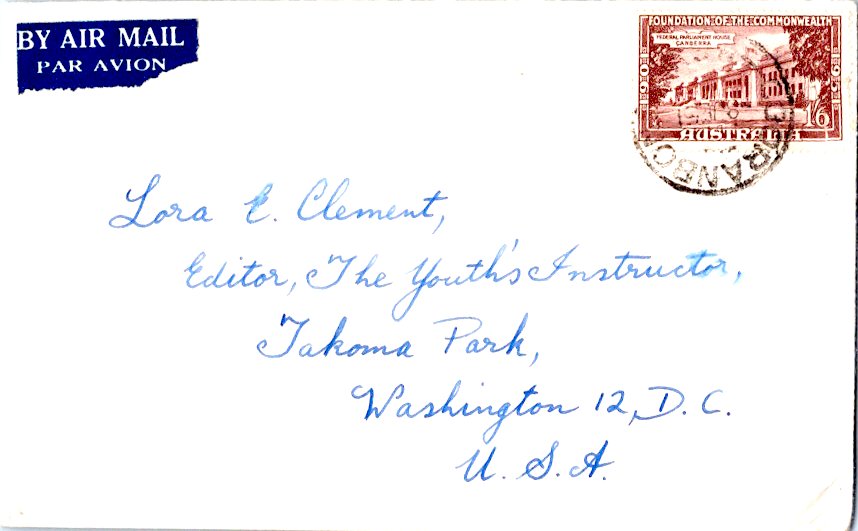 BY AIR MAIL
PAR AVION
FOUNDATION OF THE COMMONWEALTH
FEDERAL PARLIAMENT HOUSE
CANBERRA
1901
1951
1/6
AUSTRALIA
Lora E. Clement,
Editor, The Youth's Instructor,
Takoma Park,
Washington 12, D. C.
U. S. A.